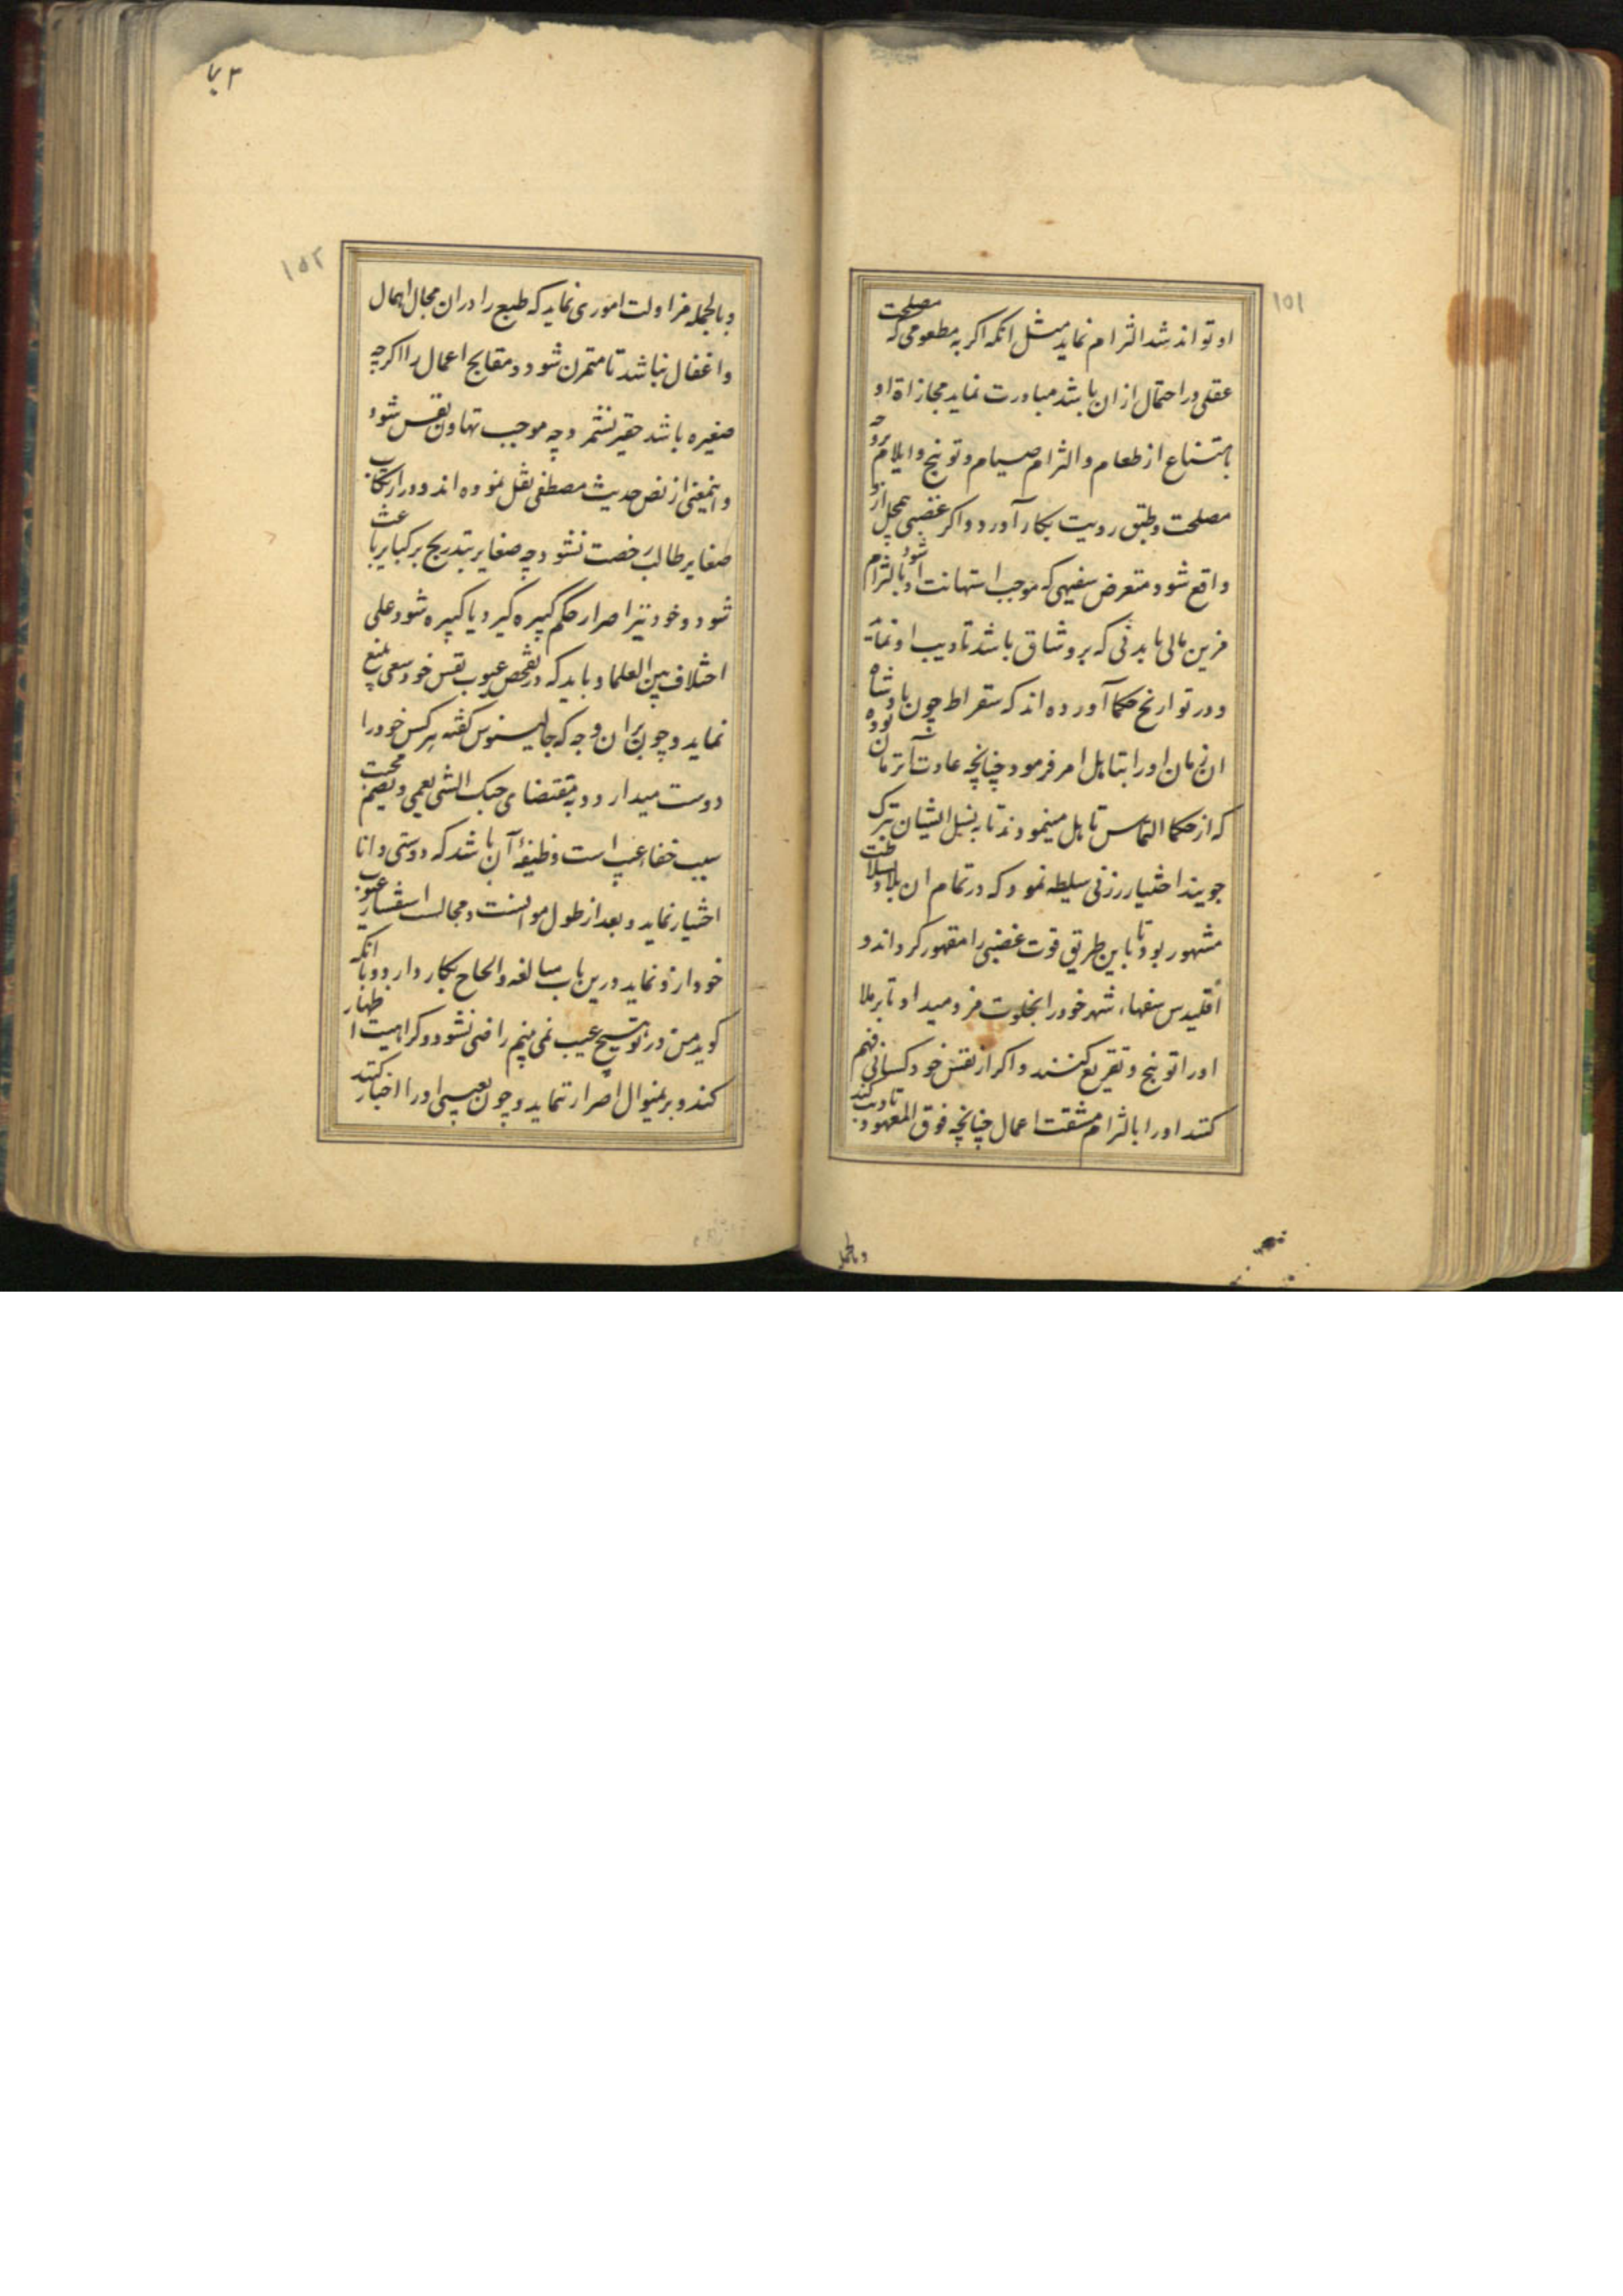 ۱۵۱
او تواند شد التزام نماید مثل انکه اکر به مطعومی که مصلحت
عقلی در احتمال ازان باشد مبادرت نماید مجازاة او
بامتناع از طعام و التزام صیام و توبیخ و ایلام بروجه
مصلحت و طبق رویت بکار آورد و اکر غضبی بمحل ازو
واقع شود متعرض سفیهی که موجب استهانت او شود بالتزام
مالی یا بدنی که برو شاق باشد تادیب او نماید
و در تواریخ حکما آورده اند که سقراط چون پادشاه
ان زمان او را بتاهل امر فرمود چنانچه عادت آن زمان بوده
که از حکما التماس تاهل مینمودند تا به نسل ایشان تبرک
جویند اختیار زنی سلیطه نمود که در تمام ان بلاد بسلاطت
مشهور بود تا باین طریق قوت غضبی را مقهور کرداند و
اقلیدس سفهاء شهر خود را بخلوت مزد میداد تا برملا
او را توبیخ و تقریع کنند و اکر از نفس خود کسانی فهم
کند او را بالتزام مشقت اعمال چنانچه فوق المعهود تادیب کند
وبالجمله
۱۵۲
وبالجمله مزاولت اموری نماید که طبع را دران مجال اهمال
و اغفال نباشد تا متمرن شود و مقابح اعمال را اکرچه
صغیره باشد حقیر نشمرد چه موجب تهاون نفس شود
و اینمعنی از نص حدیث مصطفی نقل نموده اند و در ارتکاب
صغایر طالب رخصت نشود چه صغایر بتدریج بر کبایر باعث
شود و خود نیز اصرار حکم کبیره کیرد یا کبیره شود علی
اختلاف بین العلما و باید که در تفحص عیوب نفس خود سعی بلیغ
نماید و چون بران وجه که جالینوس کفته هر کس خود را
دوست میدارد و به مقتضای حبک الشی یعمی و یصم محبت
سبب خفاء عیب است وظیفهٔ آن باشد که دوستی دانا
اختیار نماید و بعد از طول موانست و مجالست استفسار عیوب
خود ازو نماید و درین باب مبالغه و الحاح بکار دارد و بانکه
کوید من در تو هیچ عیب نمی بینم راضی نشود و کراهیت اظهار
کند و برینمنوال اصرار نماید و چون بعیبی او را اخبار کند